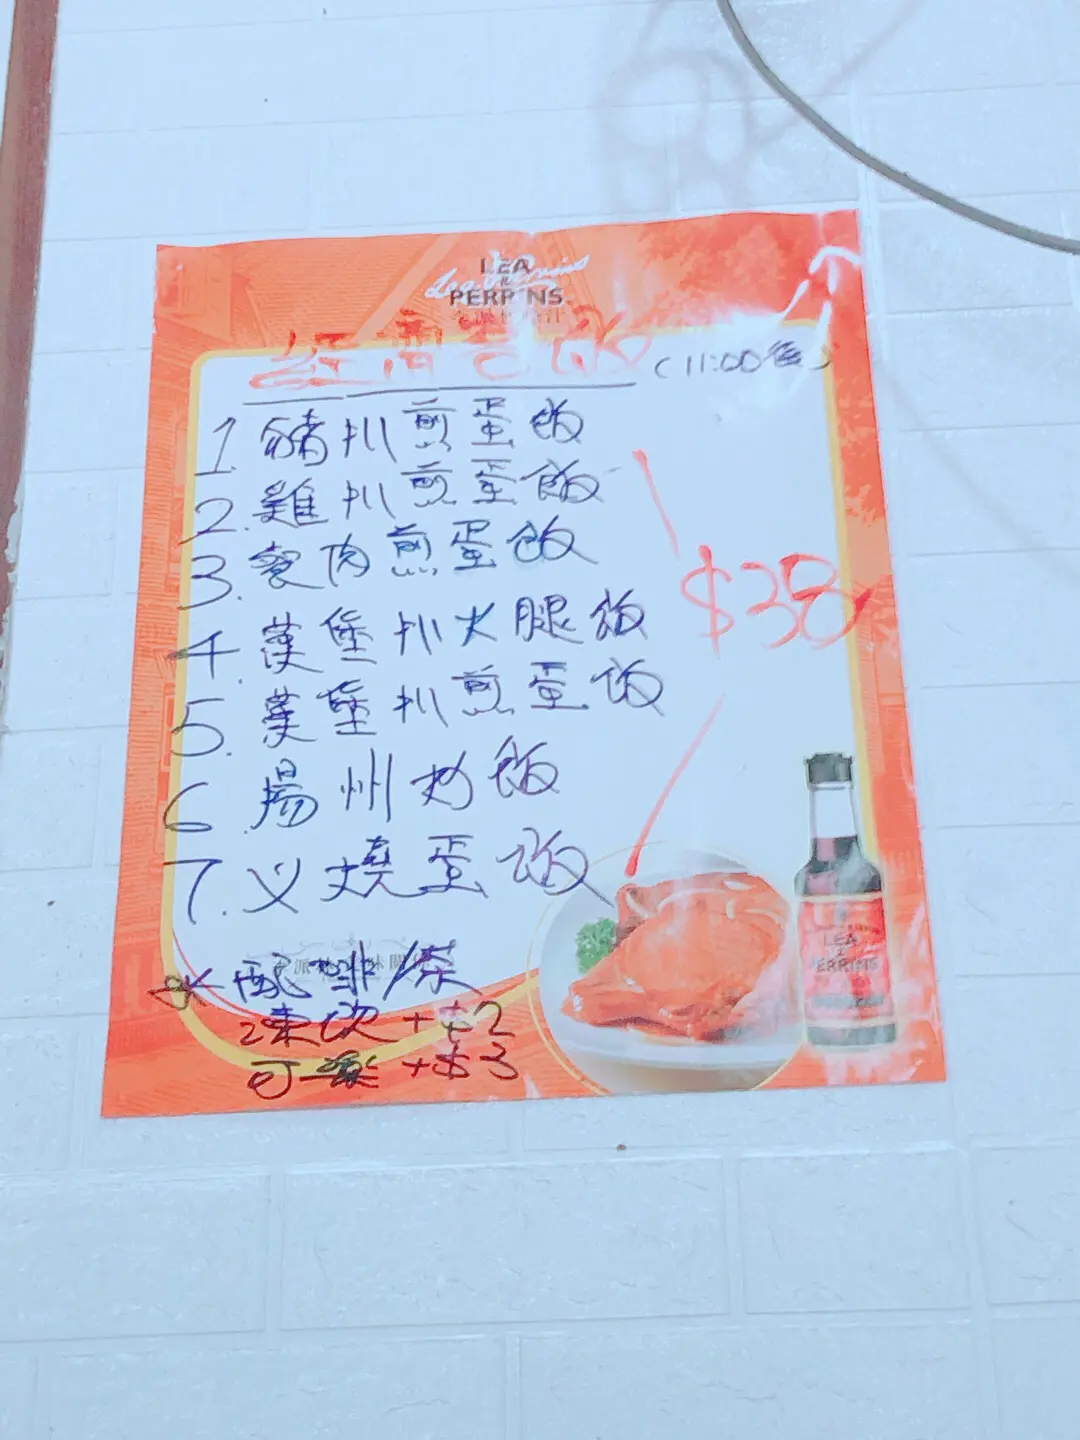 LEA
&
PERRINS
Lea & Perrins
(11:00後)
1. 豬扒煎蛋飯
2. 雞扒煎蛋飯
3. 餐肉煎蛋飯
4. 漢堡扒火腿飯
5. 漢堡扒煎蛋飯
6. 揚州炒飯
7. 乂燒蛋飯
$38
*配啡/茶
凍飲+$2
可樂+$3
LEA
&
PERRINS